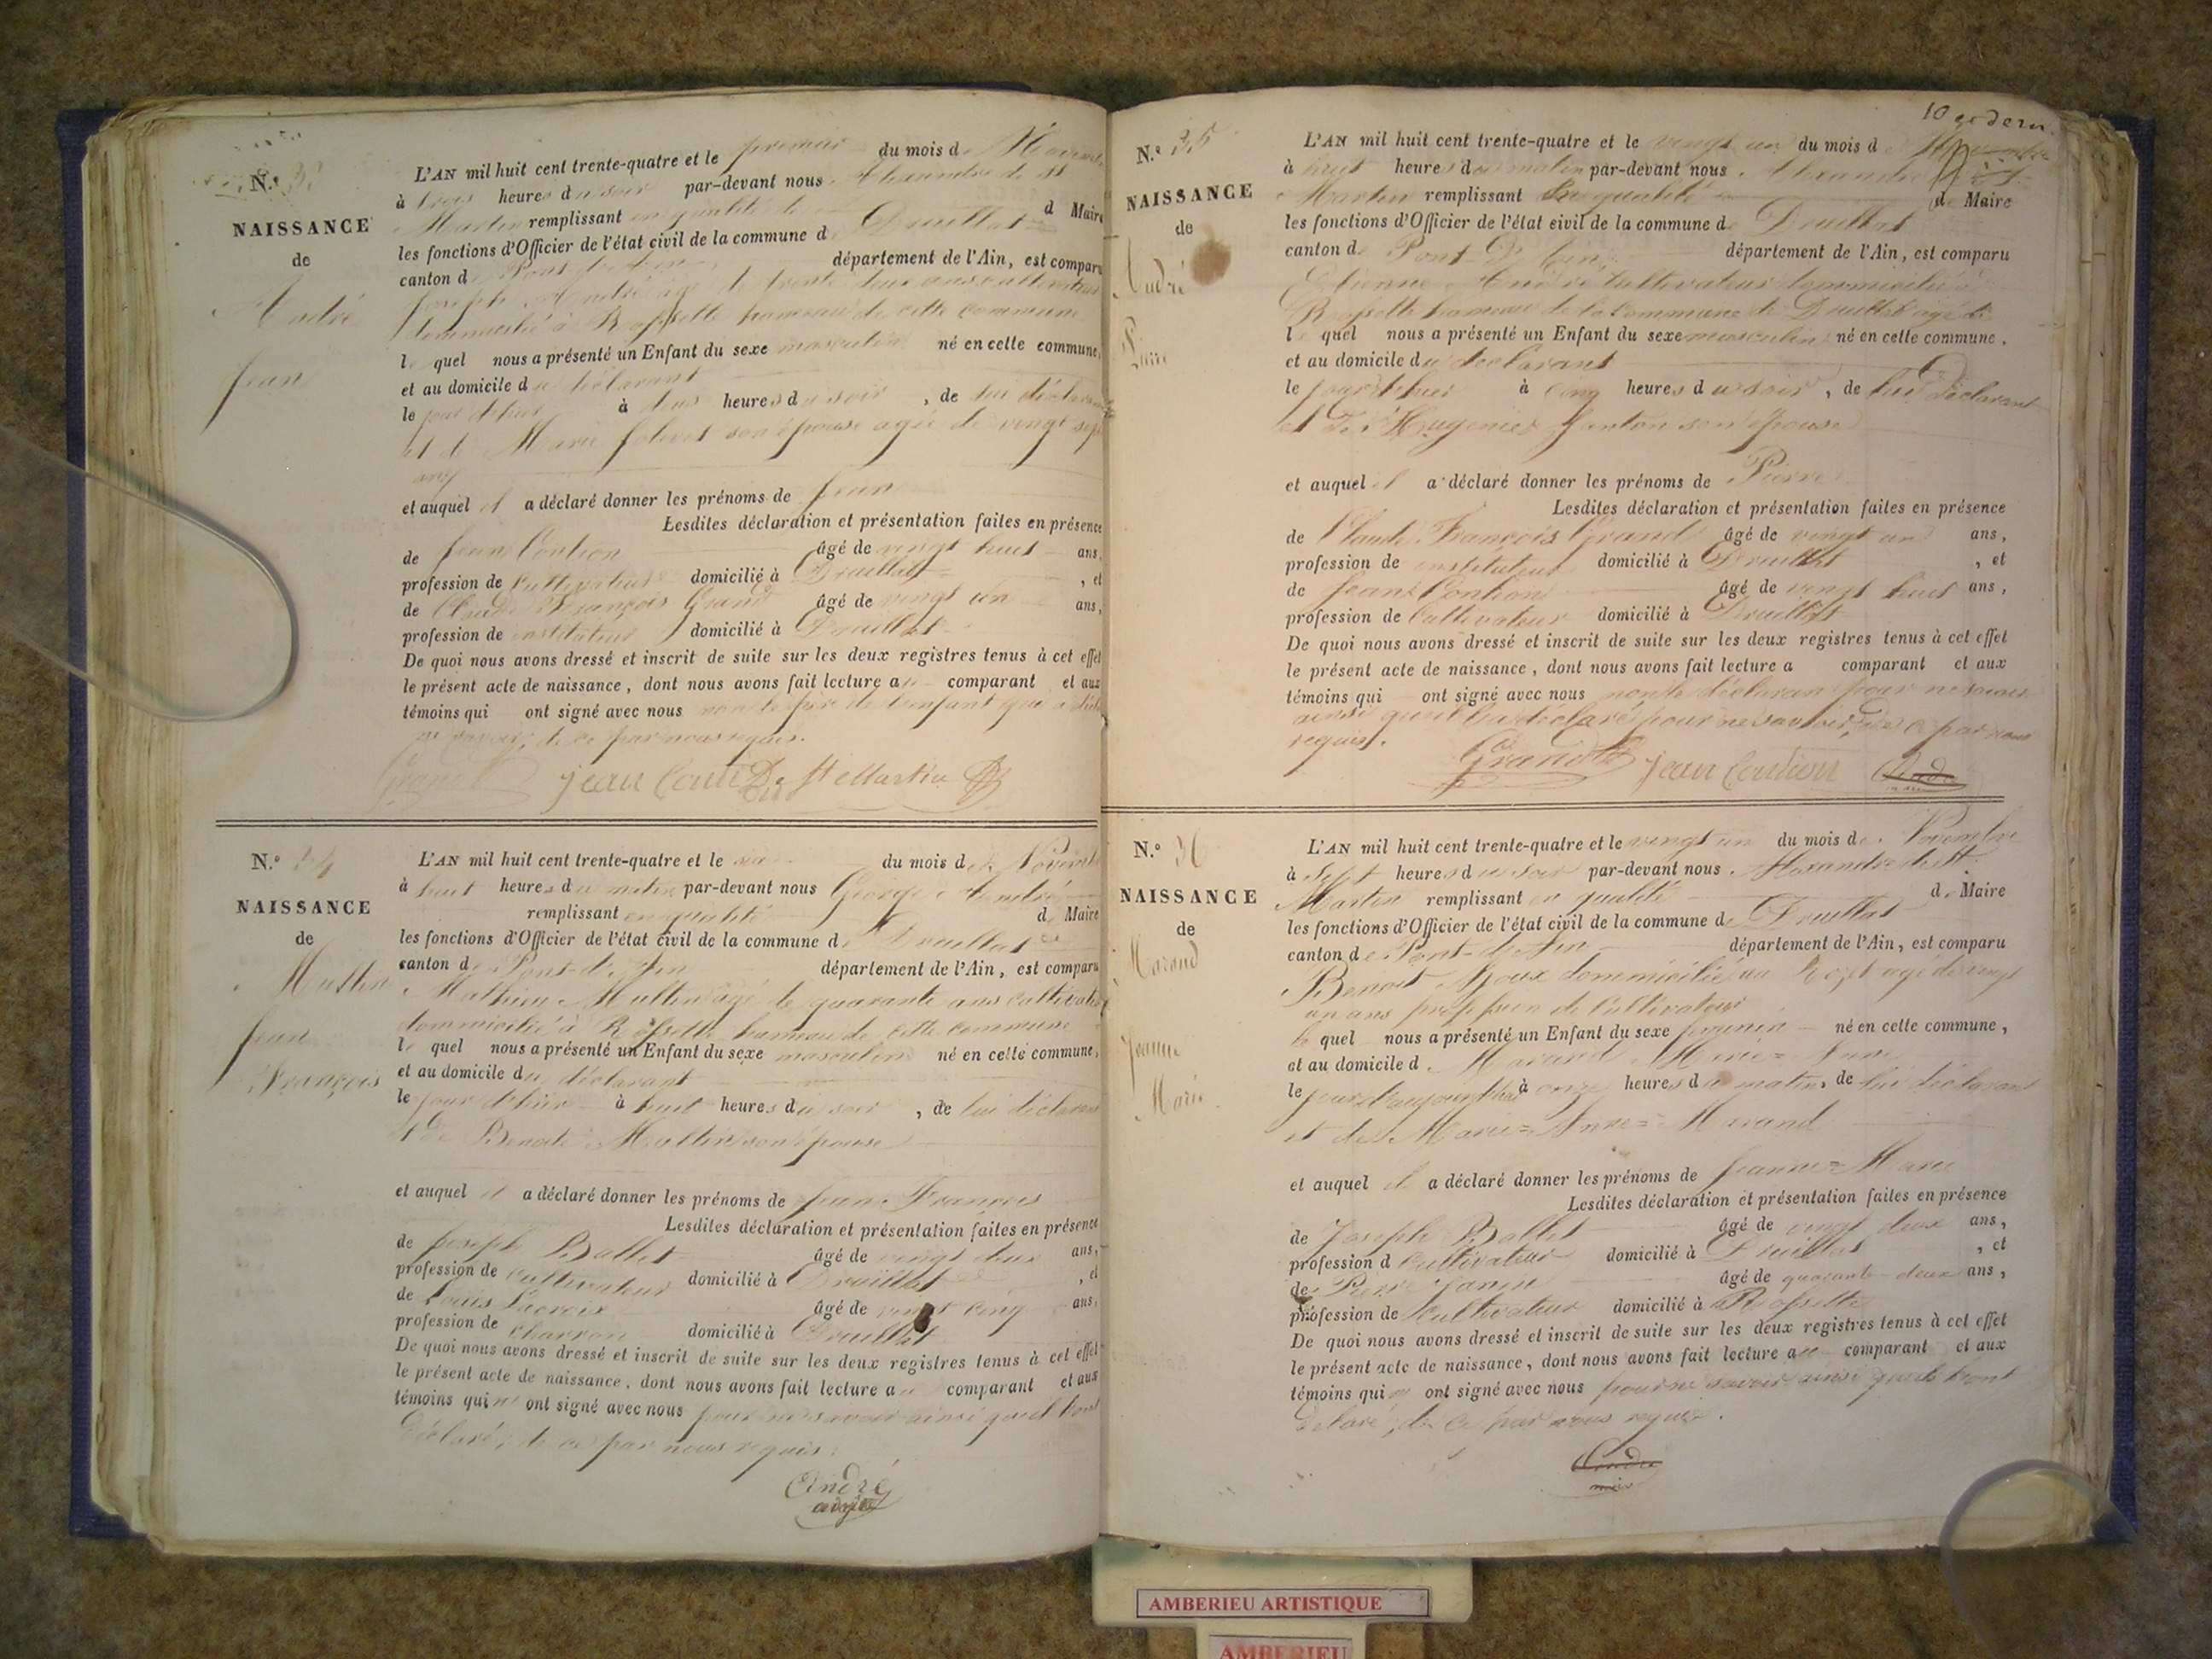 N.º
NAISSANCE
de
André
Jean
L'AN mil huit cent trente-quatre et le premier du mois de
à trois heures du soir par-devant nous Alexandre de St
Martin remplissant en qualité de de Maire
les fonctions d'Officier de l'état civil de la commune de Druillat
canton de Pont d'Ain département de l'Ain, est comparu
Joseph André agé de trente deux ans cultivateur
domicilié à Rossette hameau de cette commune
lequel nous a présenté un Enfant du sexe masculin né en cette commune,
et au domicile du déclarant
le jour d'hier à deux heures du soir, de lui déclarant
et de Marie son épouse agée de vingt sept
ans
et auquel il a déclaré donner les prénoms de Jean
Lesdites déclaration et présentation faites en présence
de Jean Contion âgé de vingt huit ans,
profession de cultivateur domicilié à Druillat, et
de Claude François Grand âgé de vingt un ans,
profession de instituteur domicilié à Druillat
De quoi nous avons dressé et inscrit de suite sur les deux registres tenus à cet effet
le présent acte de naissance, dont nous avons fait lecture au comparant et aux
témoins qui ont signé avec nous non le père de l'enfant qui a
ne savoir, de ce par nous requis.
Grand Jean De St Martin
N.º 34
NAISSANCE
de
Multin
Jean
François
L'AN mil huit cent trente-quatre et le six du mois de Novembre
à huit heures du matin par-devant nous George André
remplissant en qualité de Maire
les fonctions d'Officier de l'état civil de la commune de Druillat
canton de Pont-d'Ain département de l'Ain, est comparu
Mathieu Multin agé de quarante ans cultivateur
domicilié à Rossette hameau de cette commune
lequel nous a présenté un Enfant du sexe masculin né en cette commune,
et au domicile du déclarant
le jour d'hier à huit heures du soir, de lui déclarant
et de Benoite Multin son épouse
et auquel il a déclaré donner les prénoms de Jean François
Lesdites déclaration et présentation faites en présence
de Joseph Ballet âgé de vingt deux ans,
profession de cultivateur domicilié à Druillat, et
de Louis Lacroix âgé de vingt cinq ans,
profession de charron domicilié à Druillat
De quoi nous avons dressé et inscrit de suite sur les deux registres tenus à cet effet
le présent acte de naissance, dont nous avons fait lecture au comparant et aux
témoins qui n' ont signé avec nous pour ne savoir ainsi qu'il l'ont
déclaré, de ce par nous requis.
André
10 et dern.
N.º 35
NAISSANCE
de
André
Pierre
L'AN mil huit cent trente-quatre et le vingt un du mois de
à huit heures du matin par-devant nous Alexandre
Martin remplissant en qualité de Maire
les fonctions d'Officier de l'état civil de la commune de Druillat
canton de Pont-D'Ain département de l'Ain, est comparu
Etienne André cultivateur domicilié à
Rossette hameau de la commune de Druillat agé de
lequel nous a présenté un Enfant du sexe masculin né en cette commune,
et au domicile du déclarant
le jour d'hier à cinq heures du soir, de lui déclarant
et de Hugenie Janton son épouse
et auquel il a déclaré donner les prénoms de Pierre
Lesdites déclaration et présentation faites en présence
de Claude François Grand âgé de vingt un ans,
profession de instituteur domicilié à Druillat, et
de Jean Contion âgé de vingt huit ans,
profession de cultivateur domicilié à Druillat
De quoi nous avons dressé et inscrit de suite sur les deux registres tenus à cet effet
le présent acte de naissance, dont nous avons fait lecture a comparant et aux
témoins qui ont signé avec nous non le déclarant pour ne savoir
ainsi qu'il l'a déclaré pour ne savoir, de ce par nous
requis.
Grand Jean Contion André
N.º 36
NAISSANCE
de
Marand
Jeanne
Marie
L'AN mil huit cent trente-quatre et le vingt un du mois de Novembre
à sept heures du soir par-devant nous Alexandre de St
Martin remplissant en qualité de Maire
les fonctions d'Officier de l'état civil de la commune de Druillat
canton de Pont-d'Ain département de l'Ain, est comparu
Benoit domicilié au agé de vingt
un ans profession de cultivateur
lequel nous a présenté un Enfant du sexe feminin né en cette commune,
et au domicile d Marand Marie=Anne
le jour d'aujourd'hui à onze heures du matin, de lui déclarant
et de Marie=Anne=Marand
et auquel il a déclaré donner les prénoms de Jeanne=Marie
Lesdites déclaration et présentation faites en présence
de Joseph Ballet âgé de vingt deux ans,
profession d cultivateur domicilié à Druillat, et
de Pierre Janin âgé de quarante-deux ans,
profession de cultivateur domicilié à Rossette
De quoi nous avons dressé et inscrit de suite sur les deux registres tenus à cet effet
le présent acte de naissance, dont nous avons fait lecture au comparant et aux
témoins qui n' ont signé avec nous pour ne savoir ainsi qu'ils l'ont
déclaré, de ce par nous requis.
André
AMBERIEU ARTISTIQUE
AMBERIEU